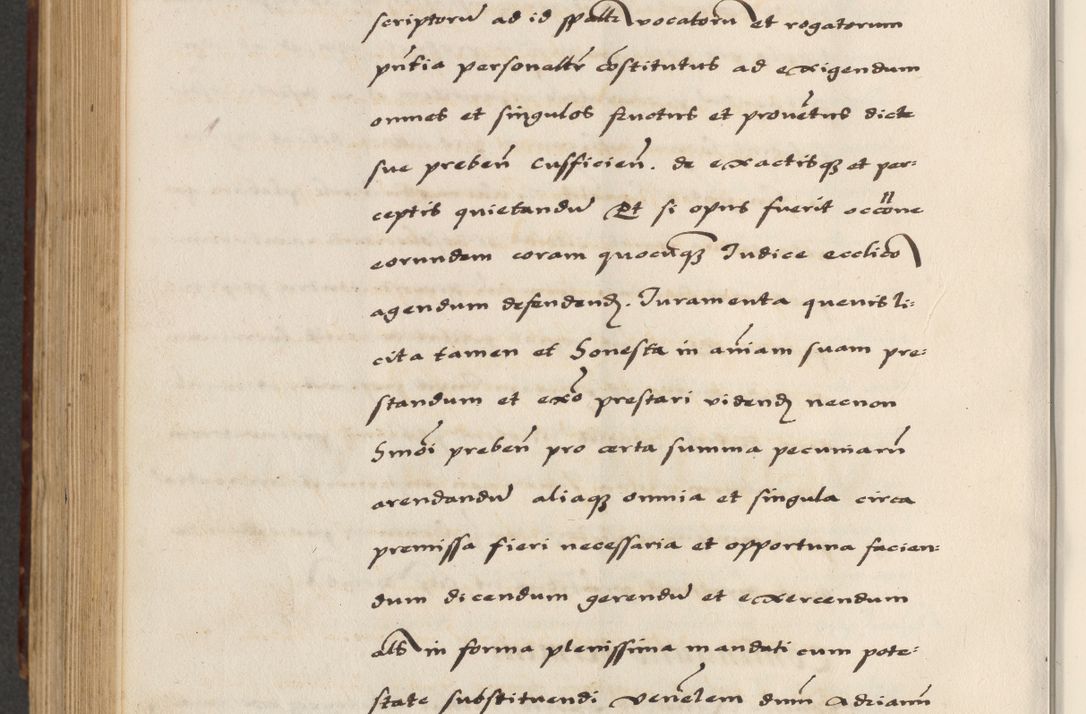 scriptorũ ad id sp̃alit̃ vocatorũ et rogatorum
pñtia personalit̃ cõstitutus ad exigendum
omnes et singulos fructus et provẽtus dicte
sue prebeñ Cusficieñ. de exactisqꝫ et per-
ceptis quietandũ Et si opus fuerit occõne
eorundem coram quocũqꝫ Iudice ecclico
agendum defendendꝫ. Iuramenta quevis li-
cita tamen et honesta in añiam suam pre-
standum et exo prestari videndꝫ necnon
hmõi prebeñ pro certa summa pecuniarũ
arendandũ aliaqꝫ omnia et singula circa
premissa fieri necessaria et opportuna facien-
dum dicendum gerendũ et exercendum
als in forma plenissima mandati cum pote-
state substituendi veñelem dnm̃ Adrianũ